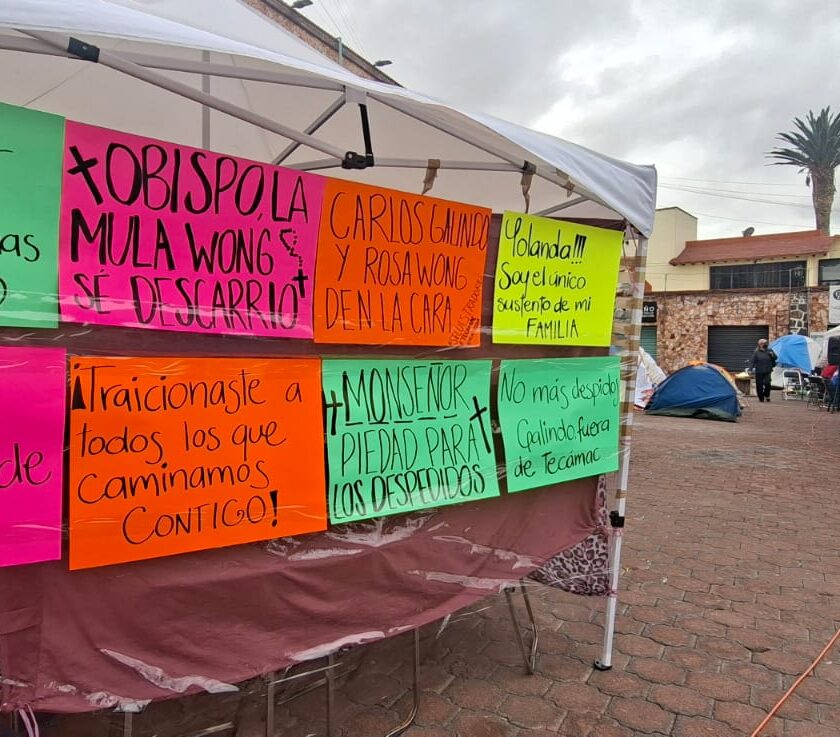 OBISPO, LA
MULA WONG
SÉ DESCARRIO
CARLOS GALINDO
Y ROSA WONG
DEN LA CARA
Yolanda!!!
Soy el único
sustento de mi
FAMILIA
¡Traicionaste a
todos los que
caminamos
CONTIGO!
MONSEÑOR
PIEDAD PARA
LOS DESPEDIDOS
No más despidos
Galindo, fuera
de Tecámac
as
de